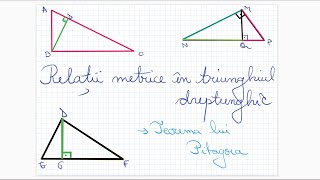 A
D
B
C
M
N
Q
P
Relații metrice în triunghiul
dreptunghic
D
E
G
F
→ Teorema lui
Pitagora